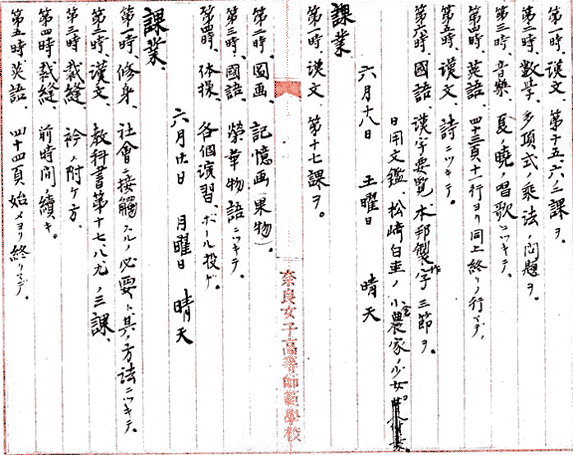 第一時、漢文、第十五、六ノ二課ヲ。
第二時、数学、多項式ノ乗法ノ問題ヲ。
第三時、音樂、夏ノ曉ノ唱歌ニツキテ。
第四時、英語、四十三頁十一行ヨリ同上終リノ行マデ。
第五時、漢文、詩ニツキテ。
第六時、國語、漢字要覧、本邦製作字三節ヲ。
日用文鑑、松崎白圭ノ小農家ノ少女。
六月十八日 土曜日 晴天
課業
第一時、漢文、第十七課ヲ。
第二時、圖画、記憶画(果物)。
奈良女子高等師範學校
第三時、國語、榮華物語ニツキテ。
第四時、体操、各個演習、ボール投ゲ。
六月廿日 月曜日 晴天
課業、
第一時、修身、社會ニ接觸スルノ必要ト其ノ方法ニツキテ。
第二時、漢文、教科書第十七、八、九ノ三課、
第三時、裁縫、衿ノ附ケ方、
第四時、裁縫、前時間續キ。
第五時、英語、四十四頁始メヨリ終リマデ。